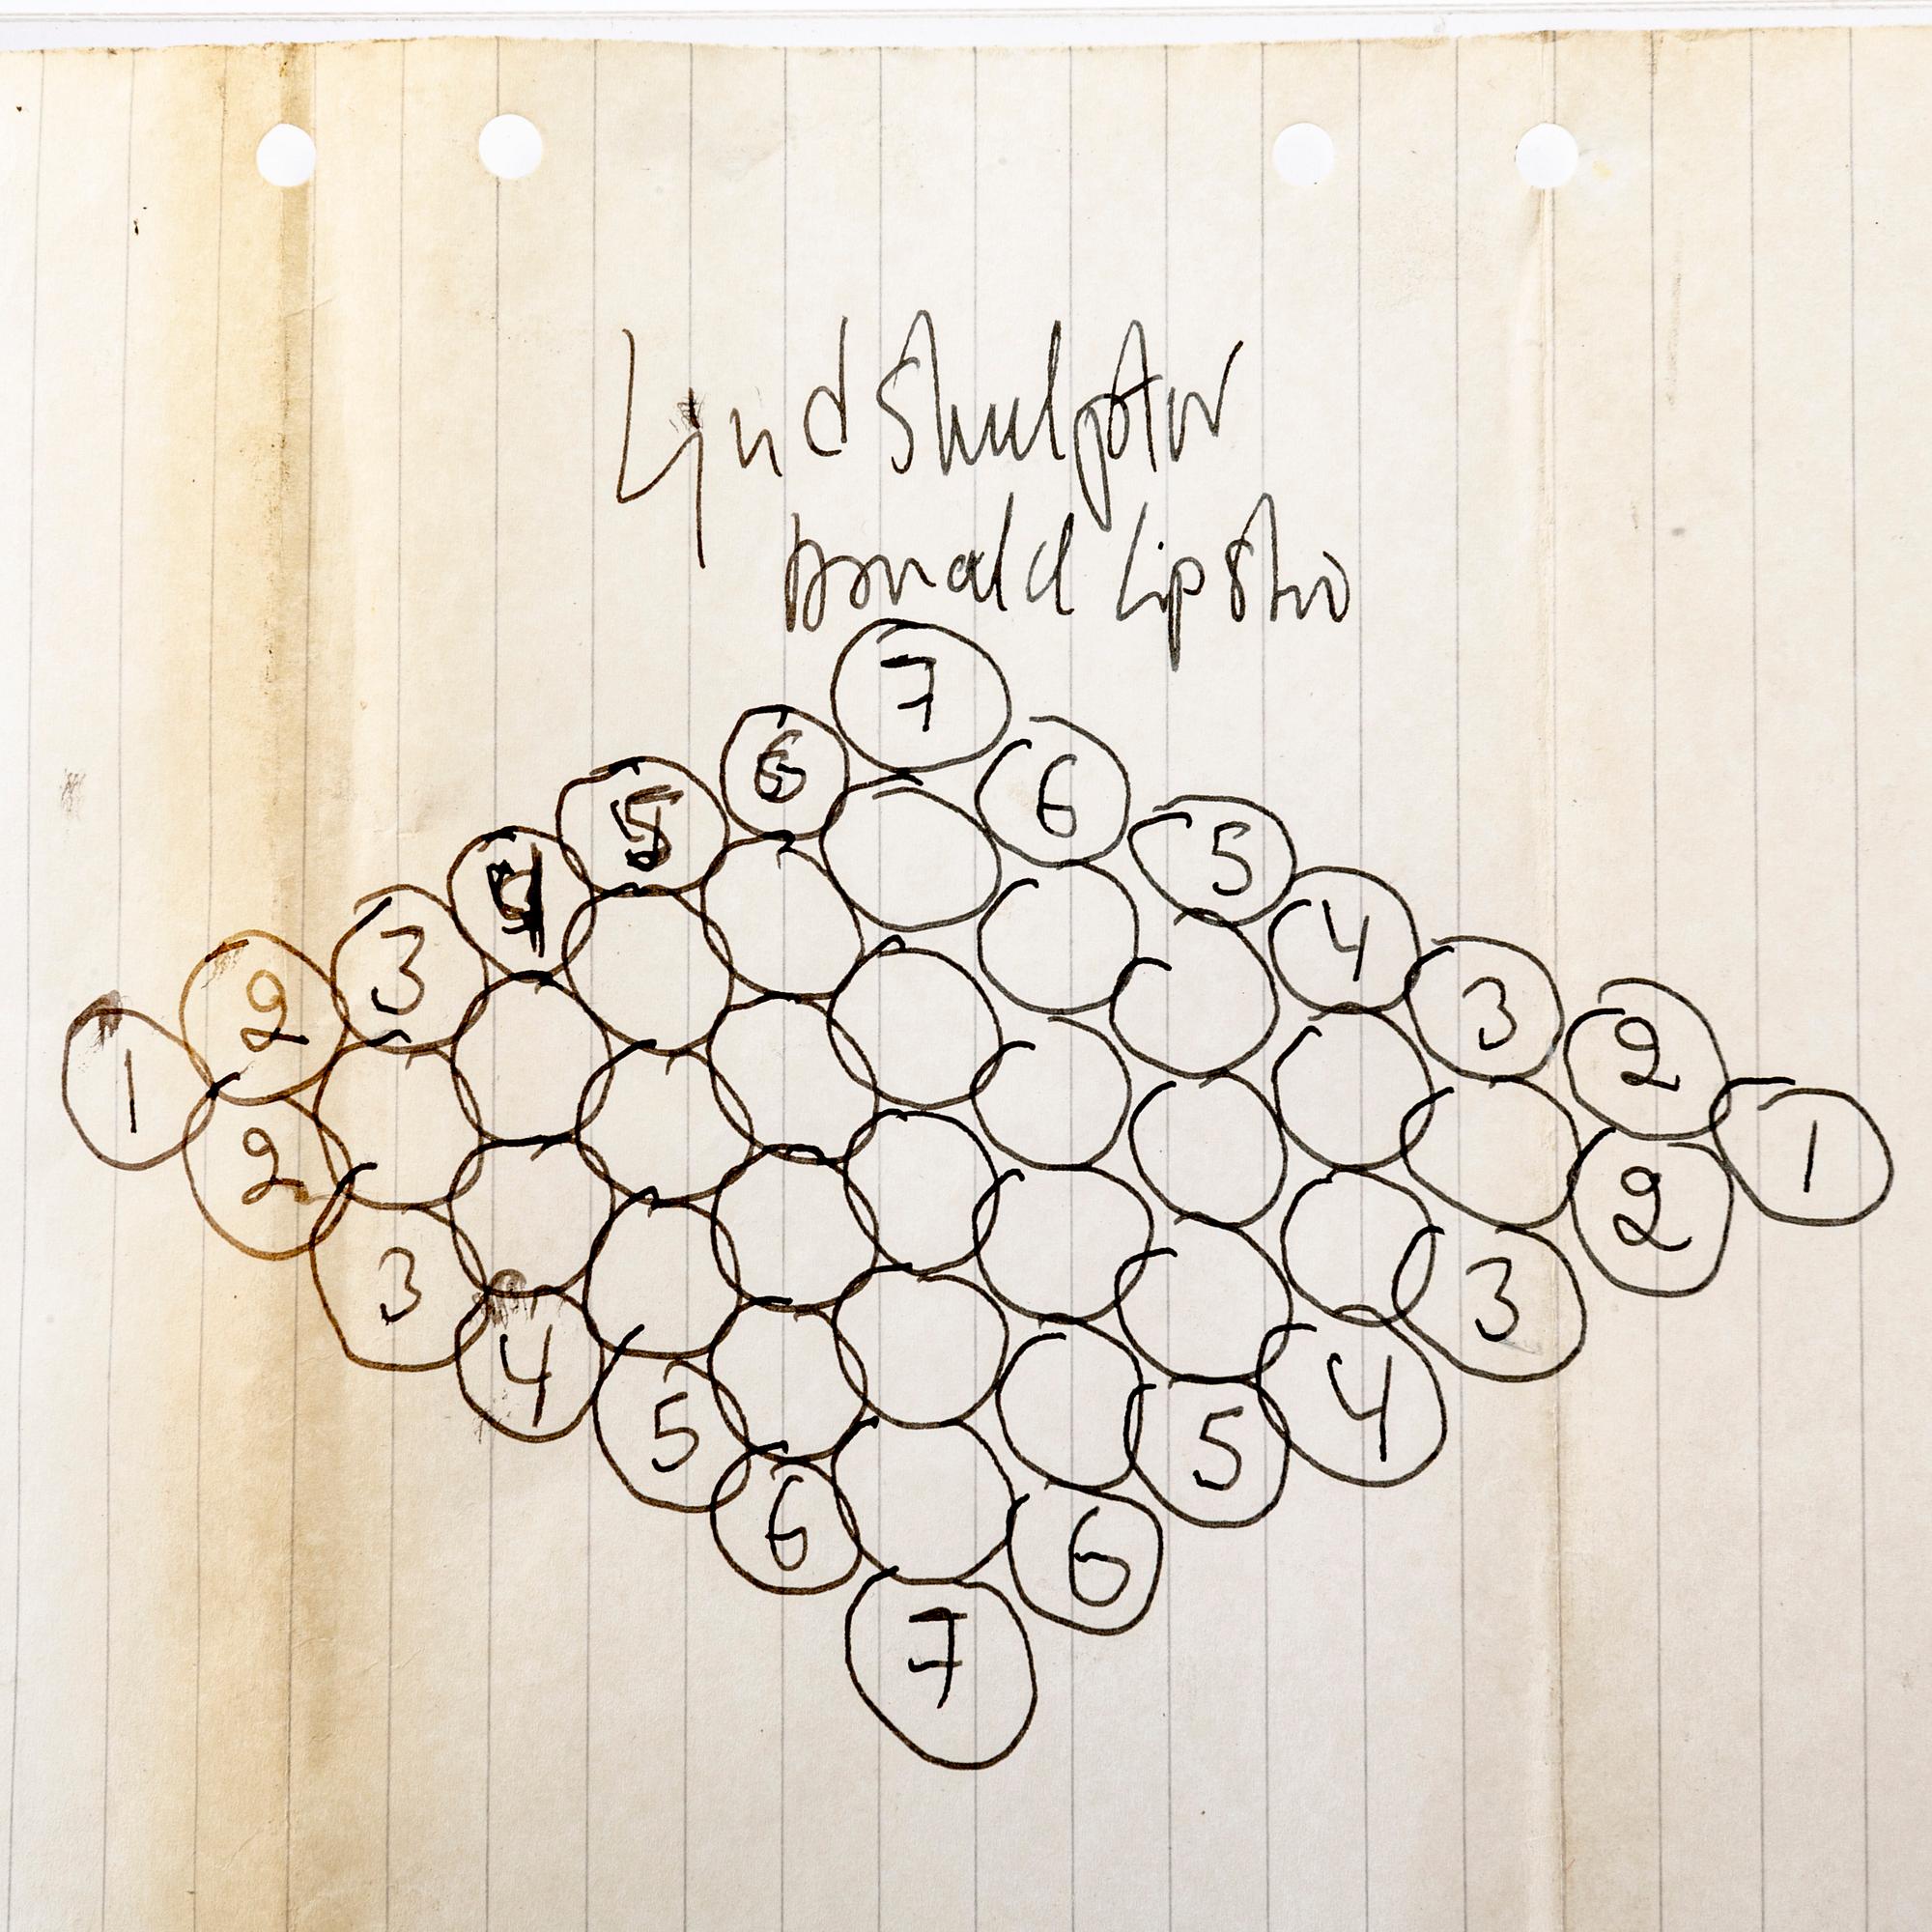 Donald
7
6 6
5 5
4 4
3 3
2 2
1 1
2 2
3 3
4 4
5 5
6 6
7